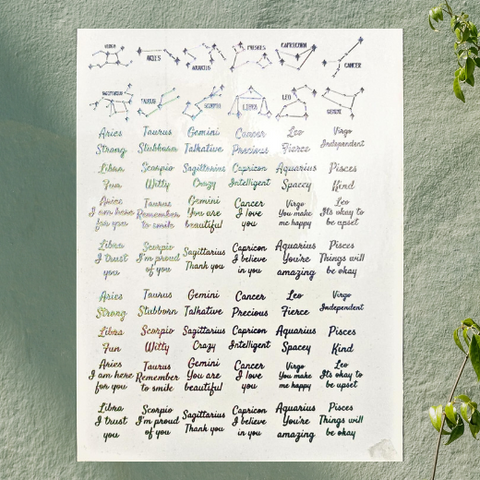 VIRGO ARIES AQUARIUS PISCES CAPRICORN CANCER
SAGITTARIUS TAURUS SCORPIO LIBRA LEO GEMINI
Aries Taurus Gemini Cancer Leo Virgo
Strong Stubborn Talkative Precious Fierce Independent
Libra Scorpio Sagittarius Capricon Aquarius Pisces
Fun Witty Crazy Intelligent Spacey Kind
Aries Taurus Gemini Cancer Virgo Leo
I am here Remember You are I love You make It's okay to
for you to smile beautiful you me happy be upset
Libra Scorpio Sagittarius Capricon Aquarius Pisces
I trust I'm proud Thank you I believe You're Things will
you of you in you amazing be okay
Aries Taurus Gemini Cancer Leo Virgo
Strong Stubborn Talkative Precious Fierce Independent
Libra Scorpio Sagittarius Capricon Aquarius Pisces
Fun Witty Crazy Intelligent Spacey Kind
Aries Taurus Gemini Cancer Virgo Leo
I am here Remember You are I love You make It's okay to
for you to smile beautiful you me happy be upset
Libra Scorpio Sagittarius Capricon Aquarius Pisces
I trust I'm proud Thank you I believe You're Things will
you of you in you amazing be okay